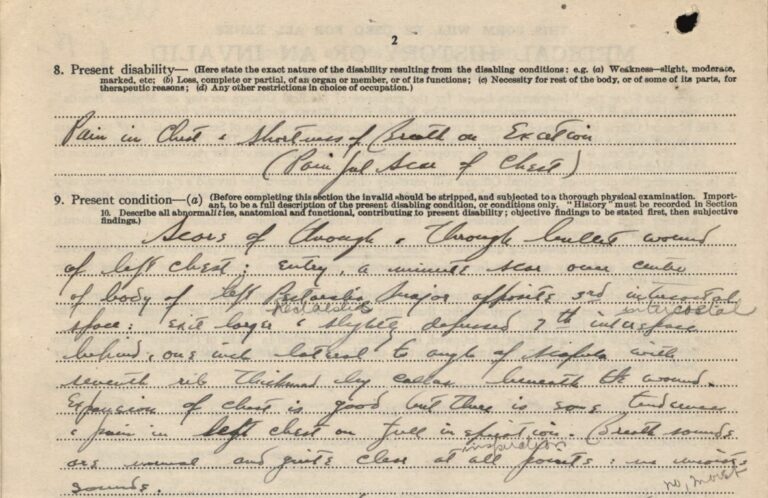 2
8. Present disability— (Here state the exact nature of the disability resulting from the disabling conditions: e.g. (a) Weakness—slight, moderate,
marked, etc; (b) Loss, complete or partial, of an organ or member, or of its functions; (c) Necessity for rest of the body, or of some of its parts, for
therapeutic reasons; (d) Any other restrictions in choice of occupation.)
Pain in Chest & Shortness of Breath on Exertion
(Painful Scar of Chest)
9. Present condition—(a) (Before completing this section the invalid should be stripped, and subjected to a thorough physical examination. Import-
ant, to be a full description of the present disabling condition, or conditions only. "History" must be recorded in Section
10. Describe all abnormalities, anatomical and functional, contributing to present disability; objective findings to be stated first, then subjective
findings.)
Scars of through & through bullet wound
of left chest; entry, a minute scar over centre
of body of left Pectoralis Major opposite 3rd intercostal
Pectoralis intercostal
space: exit larger & slightly depressed 7th interspace
behind, one inch lateral to angle of scapula with
seventh rib thickened by callus beneath the wound.
Expansion of chest is good but there is some tenderness
& pain in left chest on full inspiration. Breath sounds
inspiration
are normal and quite clear at all points: no moist
sounds.
no, moist